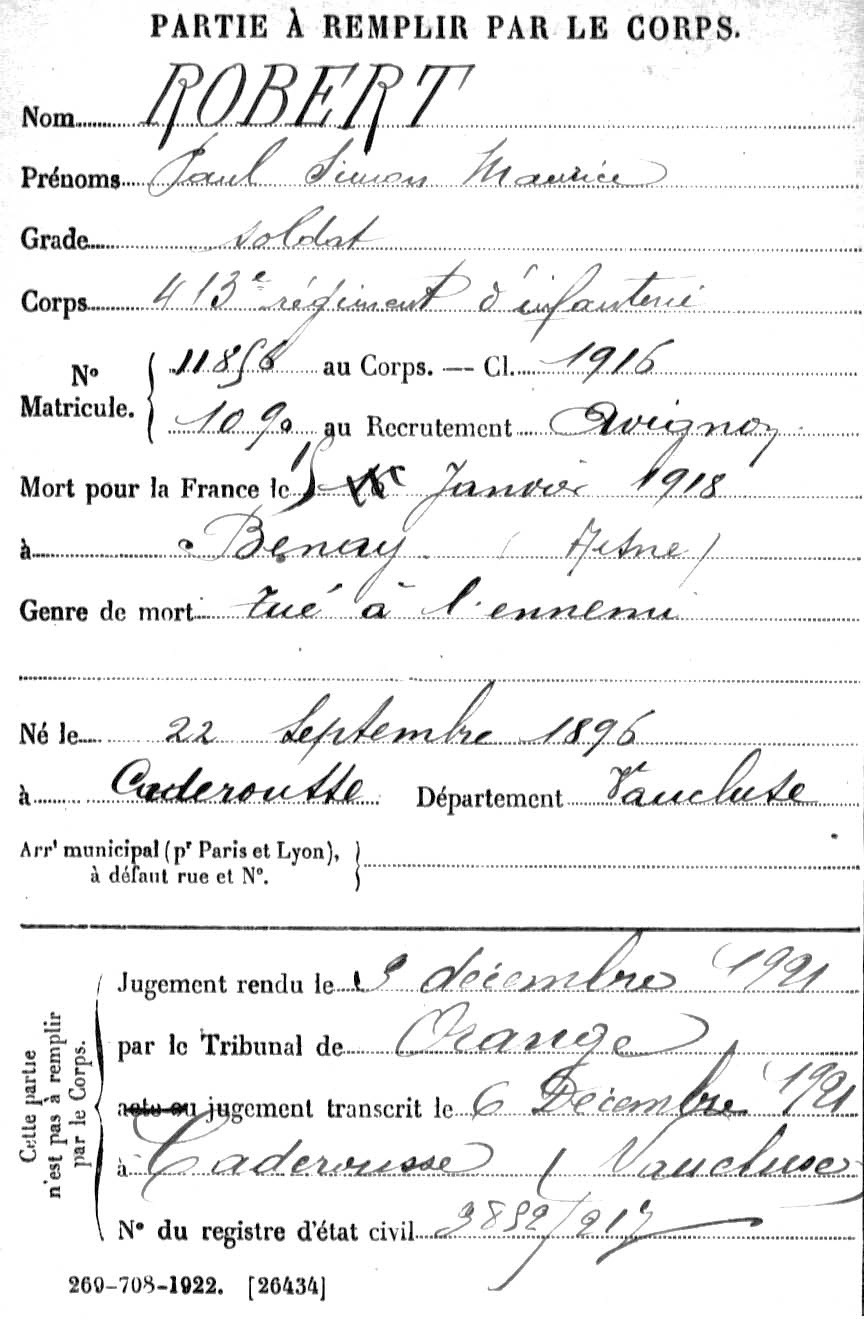 PARTIE À REMPLIR PAR LE CORPS.
Nom ROBERT
Prénoms Paul Simon Maurice
Grade soldat
Corps 413e régiment d'infanterie
No Matricule. 11856 au Corps. — Cl. 1916
1090 au Recrutement Avignon
Mort pour la France le Janvier 1918
à Benay (Aisne)
Genre de mort tué à l'ennemi
Né le 22 Septembre 1896
à Caderousse Département Vaucluse
Arrt municipal (pr Paris et Lyon),
à défaut rue et No.
Cette partie n'est pas à remplir par le Corps.
Jugement rendu le décembre 1921
par le Tribunal de Orange
acte ou jugement transcrit le 6 Décembre 1921
à Caderousse (Vaucluse)
No du registre d'état civil 3852/217
269-708-1922. [26434]